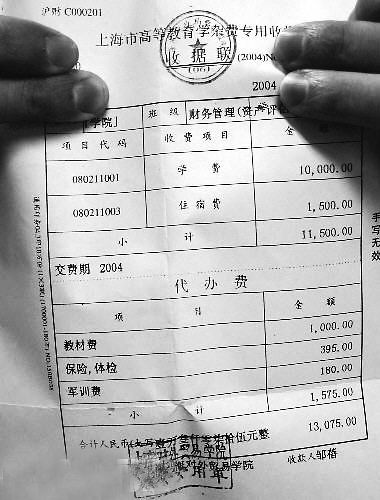 沪财 C000201
上海市高等教育学杂费专用收
收据联 (2004)No
2004
学院」 班 级 财务管理(资产评
项目代码 收费项目 金 额
080211001 学 费 10,000.00
080211003 住宿费 1,500.00
小 计 11,500.00
交费期 2004
代办费
项 目 金 额
教材费 1,000.00
保险,体检 395.00
军训费 180.00
小 计 1,575.00
合计人民币(大写) 伍元整 13,075.00
贸易学院 收款人邹蓓
手写无效